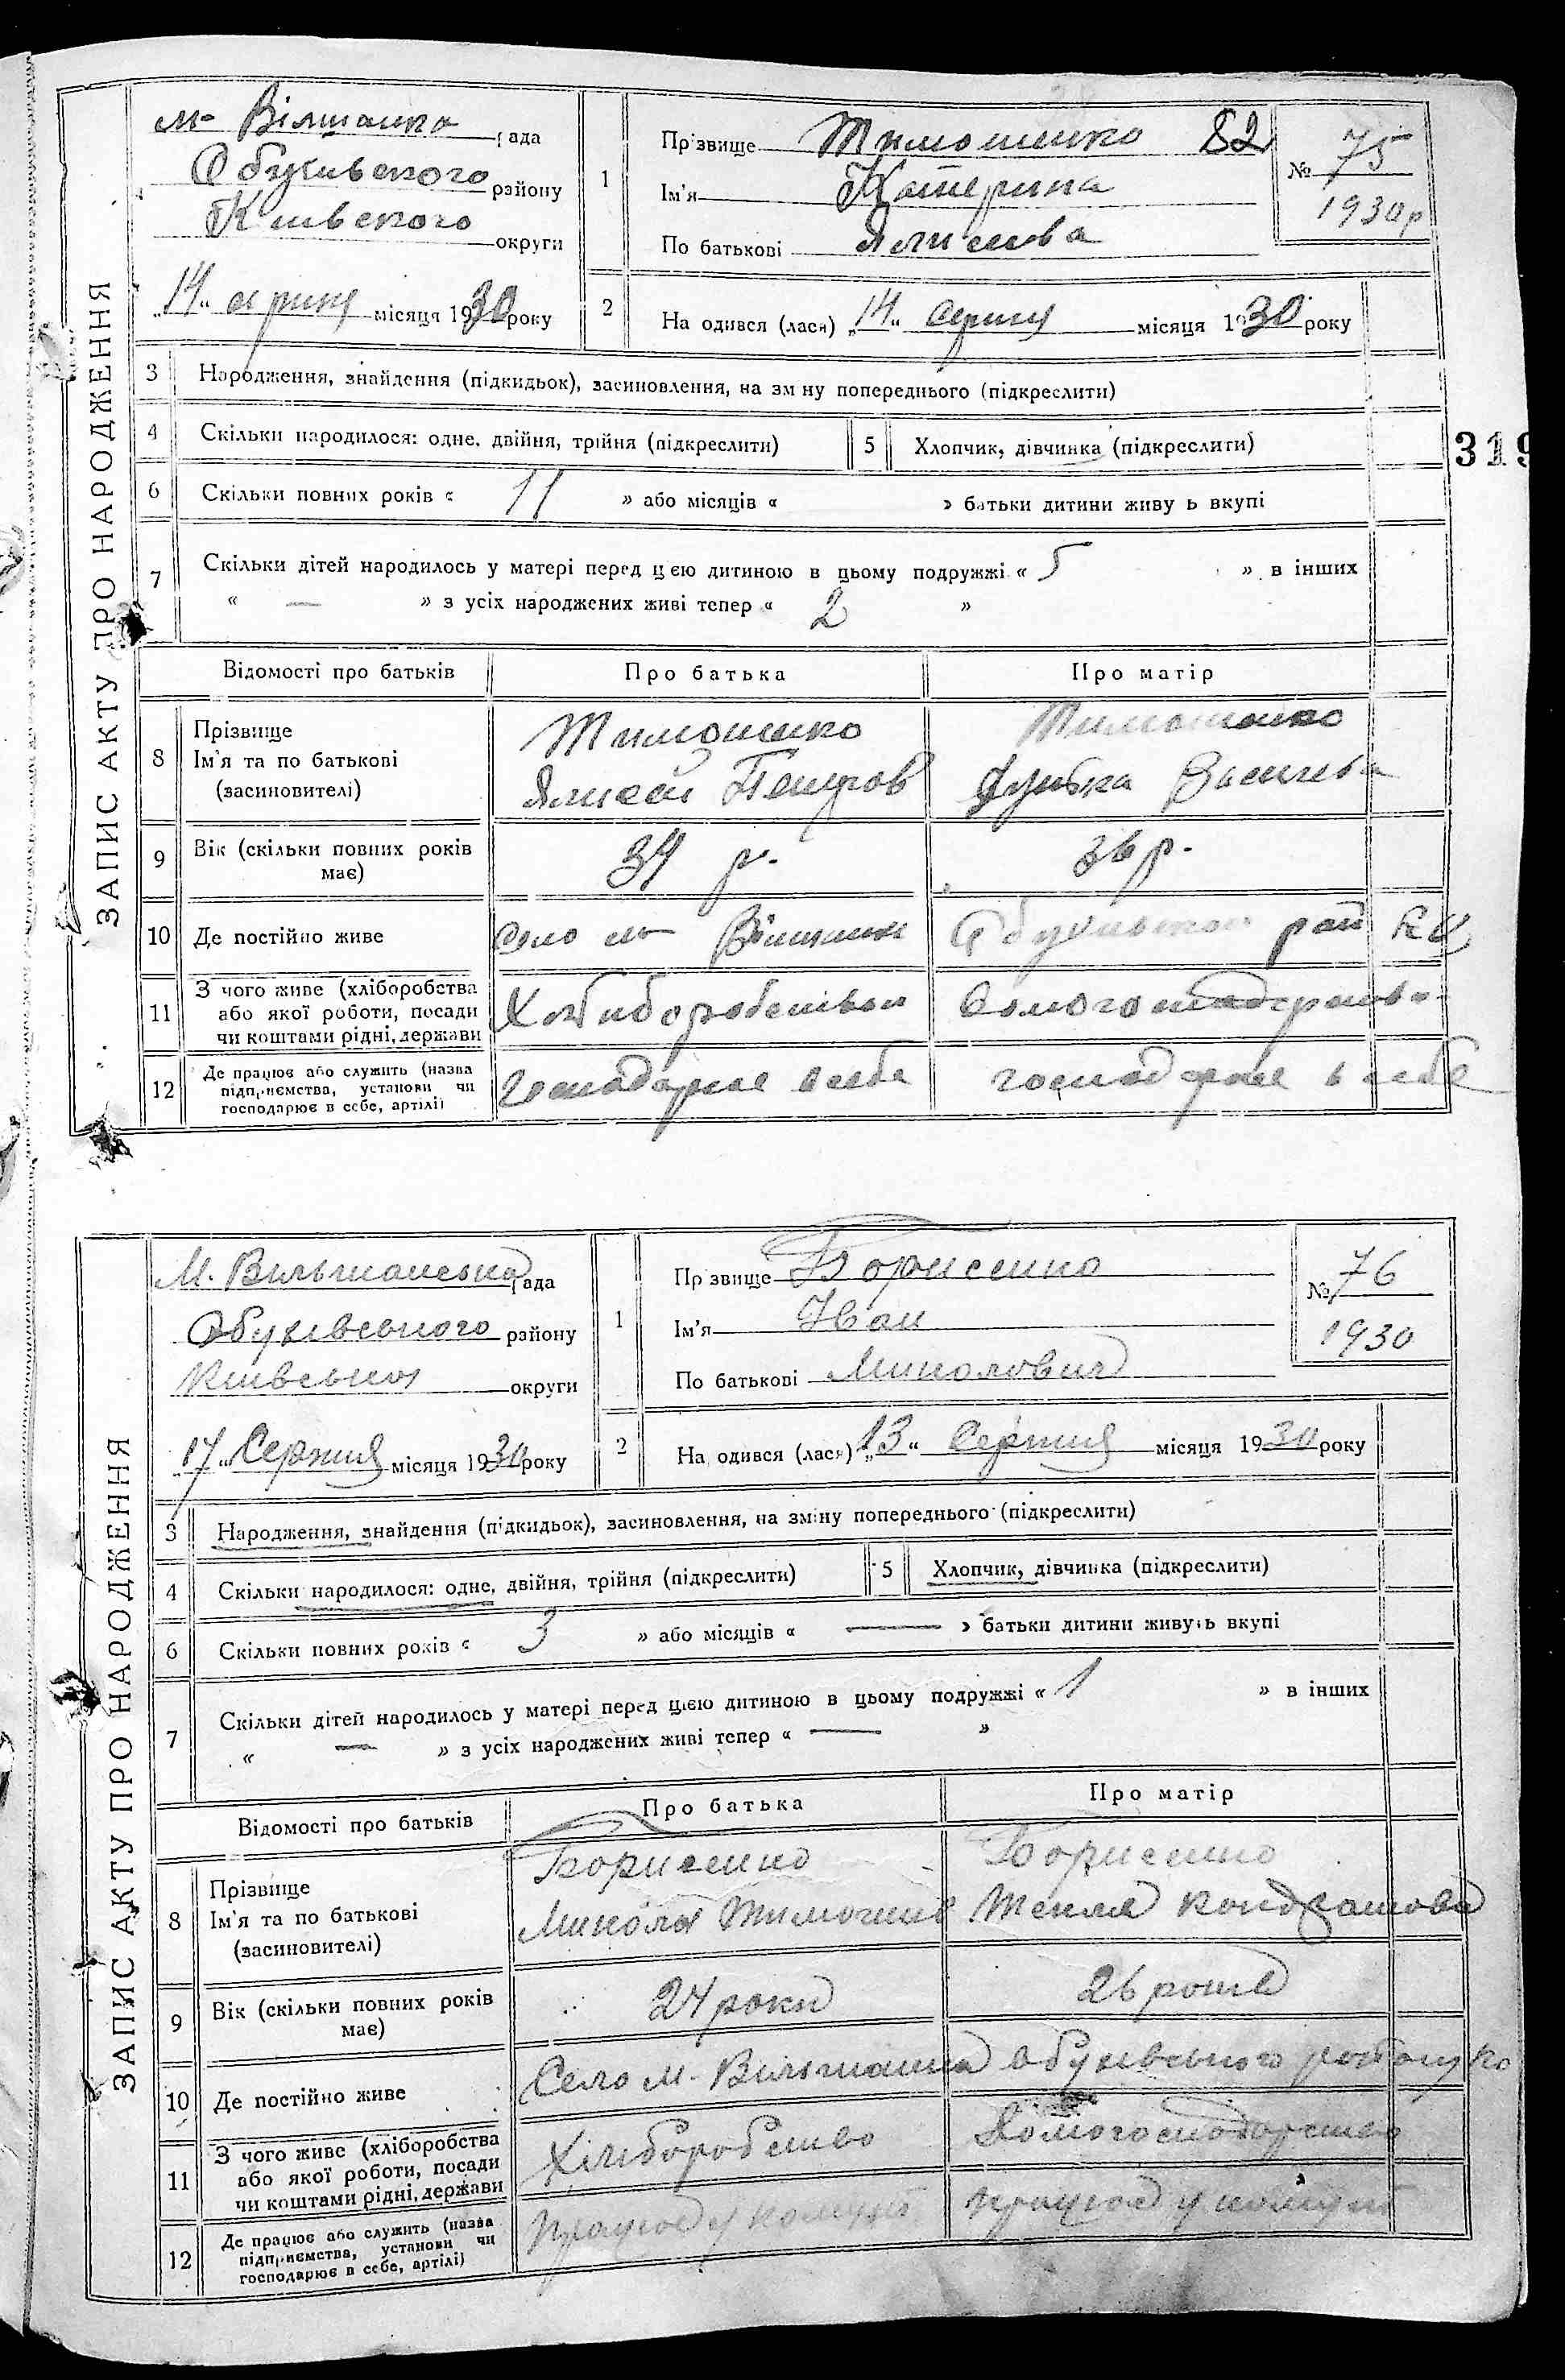 ЗАПИС АКТУ ПРО НАРОДЖЕННЯ
м- Вілшанка рада
Обухивского району
Киівского округи
„14“ серпня місяця 1930 року
1
Прізвище Тимошенко 82
Ім'я Катерина
По батькові
№ 75
1930 р
2
На одився (лася) „14“ серпня місяця 1930 року
3 Народження, знайдення (підкидьок), засиновлення, на зм ну попереднього (підкреслити)
4 Скільки народилося: одне, двійня, трійня (підкреслити)
5 Хлопчик, дівчинка (підкреслити)
319
6 Скільки повних років « 11 » або місяців « » батьки дитини живу ь вкупі
7 Скільки дітей народилось у матері перед цією дитиною в цьому подружжі « 5 » в інших
« — » з усіх народжених живі тепер « 2 »
Відомості про батьків Про батька Про матір
8 Прізвище
Ім'я та по батькові
(засиновителі)
Тимошенко
Петров
Тимошенко
Василева
9 Вік (скільки повних років
має)
34 р.
36 р.
10 Де постійно живе
село м Вілшанка Обухивского рай
11 З чого живе (хліборобства
або якої роботи, посади
чи коштами рідні, держави
12 Де працює або служить (назва
підприємства, установи чи
господарює в себе, артілі)
господарює в себе
господарює в себе
ЗАПИС АКТУ ПРО НАРОДЖЕННЯ
М. Вильшанська рада
Обухівського району
Киівськоі округи
„17“ Серпня місяця 1930 року
1
Пр звище Борисенко
Ім'я Иван
По батькові Миколович
№ 76
1930
2
На одився (лася) „13“ Серпня місяця 1930 року
3 Народження, знайдення (підкидьок), засиновлення, на зміну попереднього (підкреслити)
4 Скільки народилося: одне, двійня, трійня (підкреслити)
5 Хлопчик, дівчинка (підкреслити)
6 Скільки повних років « 3 » або місяців « — » батьки дитини живуть вкупі
7 Скільки дітей народилось у матері перед цією дитиною в цьому подружжі « 1 » в інших
« — » з усіх народжених живі тепер « — »
Відомості про батьків Про батька Про матір
8 Прізвище
Ім'я та по батькові
(засиновителі)
Борисенко
Микола Тимошив
Борисенко
Текля Кондратова
9 Вік (скільки повних років
має)
24 роки
26 років
10 Де постійно живе
Село М. Вильшанка Обухівського району
11 З чого живе (хліборобства
або якої роботи, посади
чи коштами рідні, держави
Хліборобство
Домогосподарство
12 Де працює або служить (назва
підприємства, установи чи
господарює в себе, артілі)
працює у комуні
працює у комуні